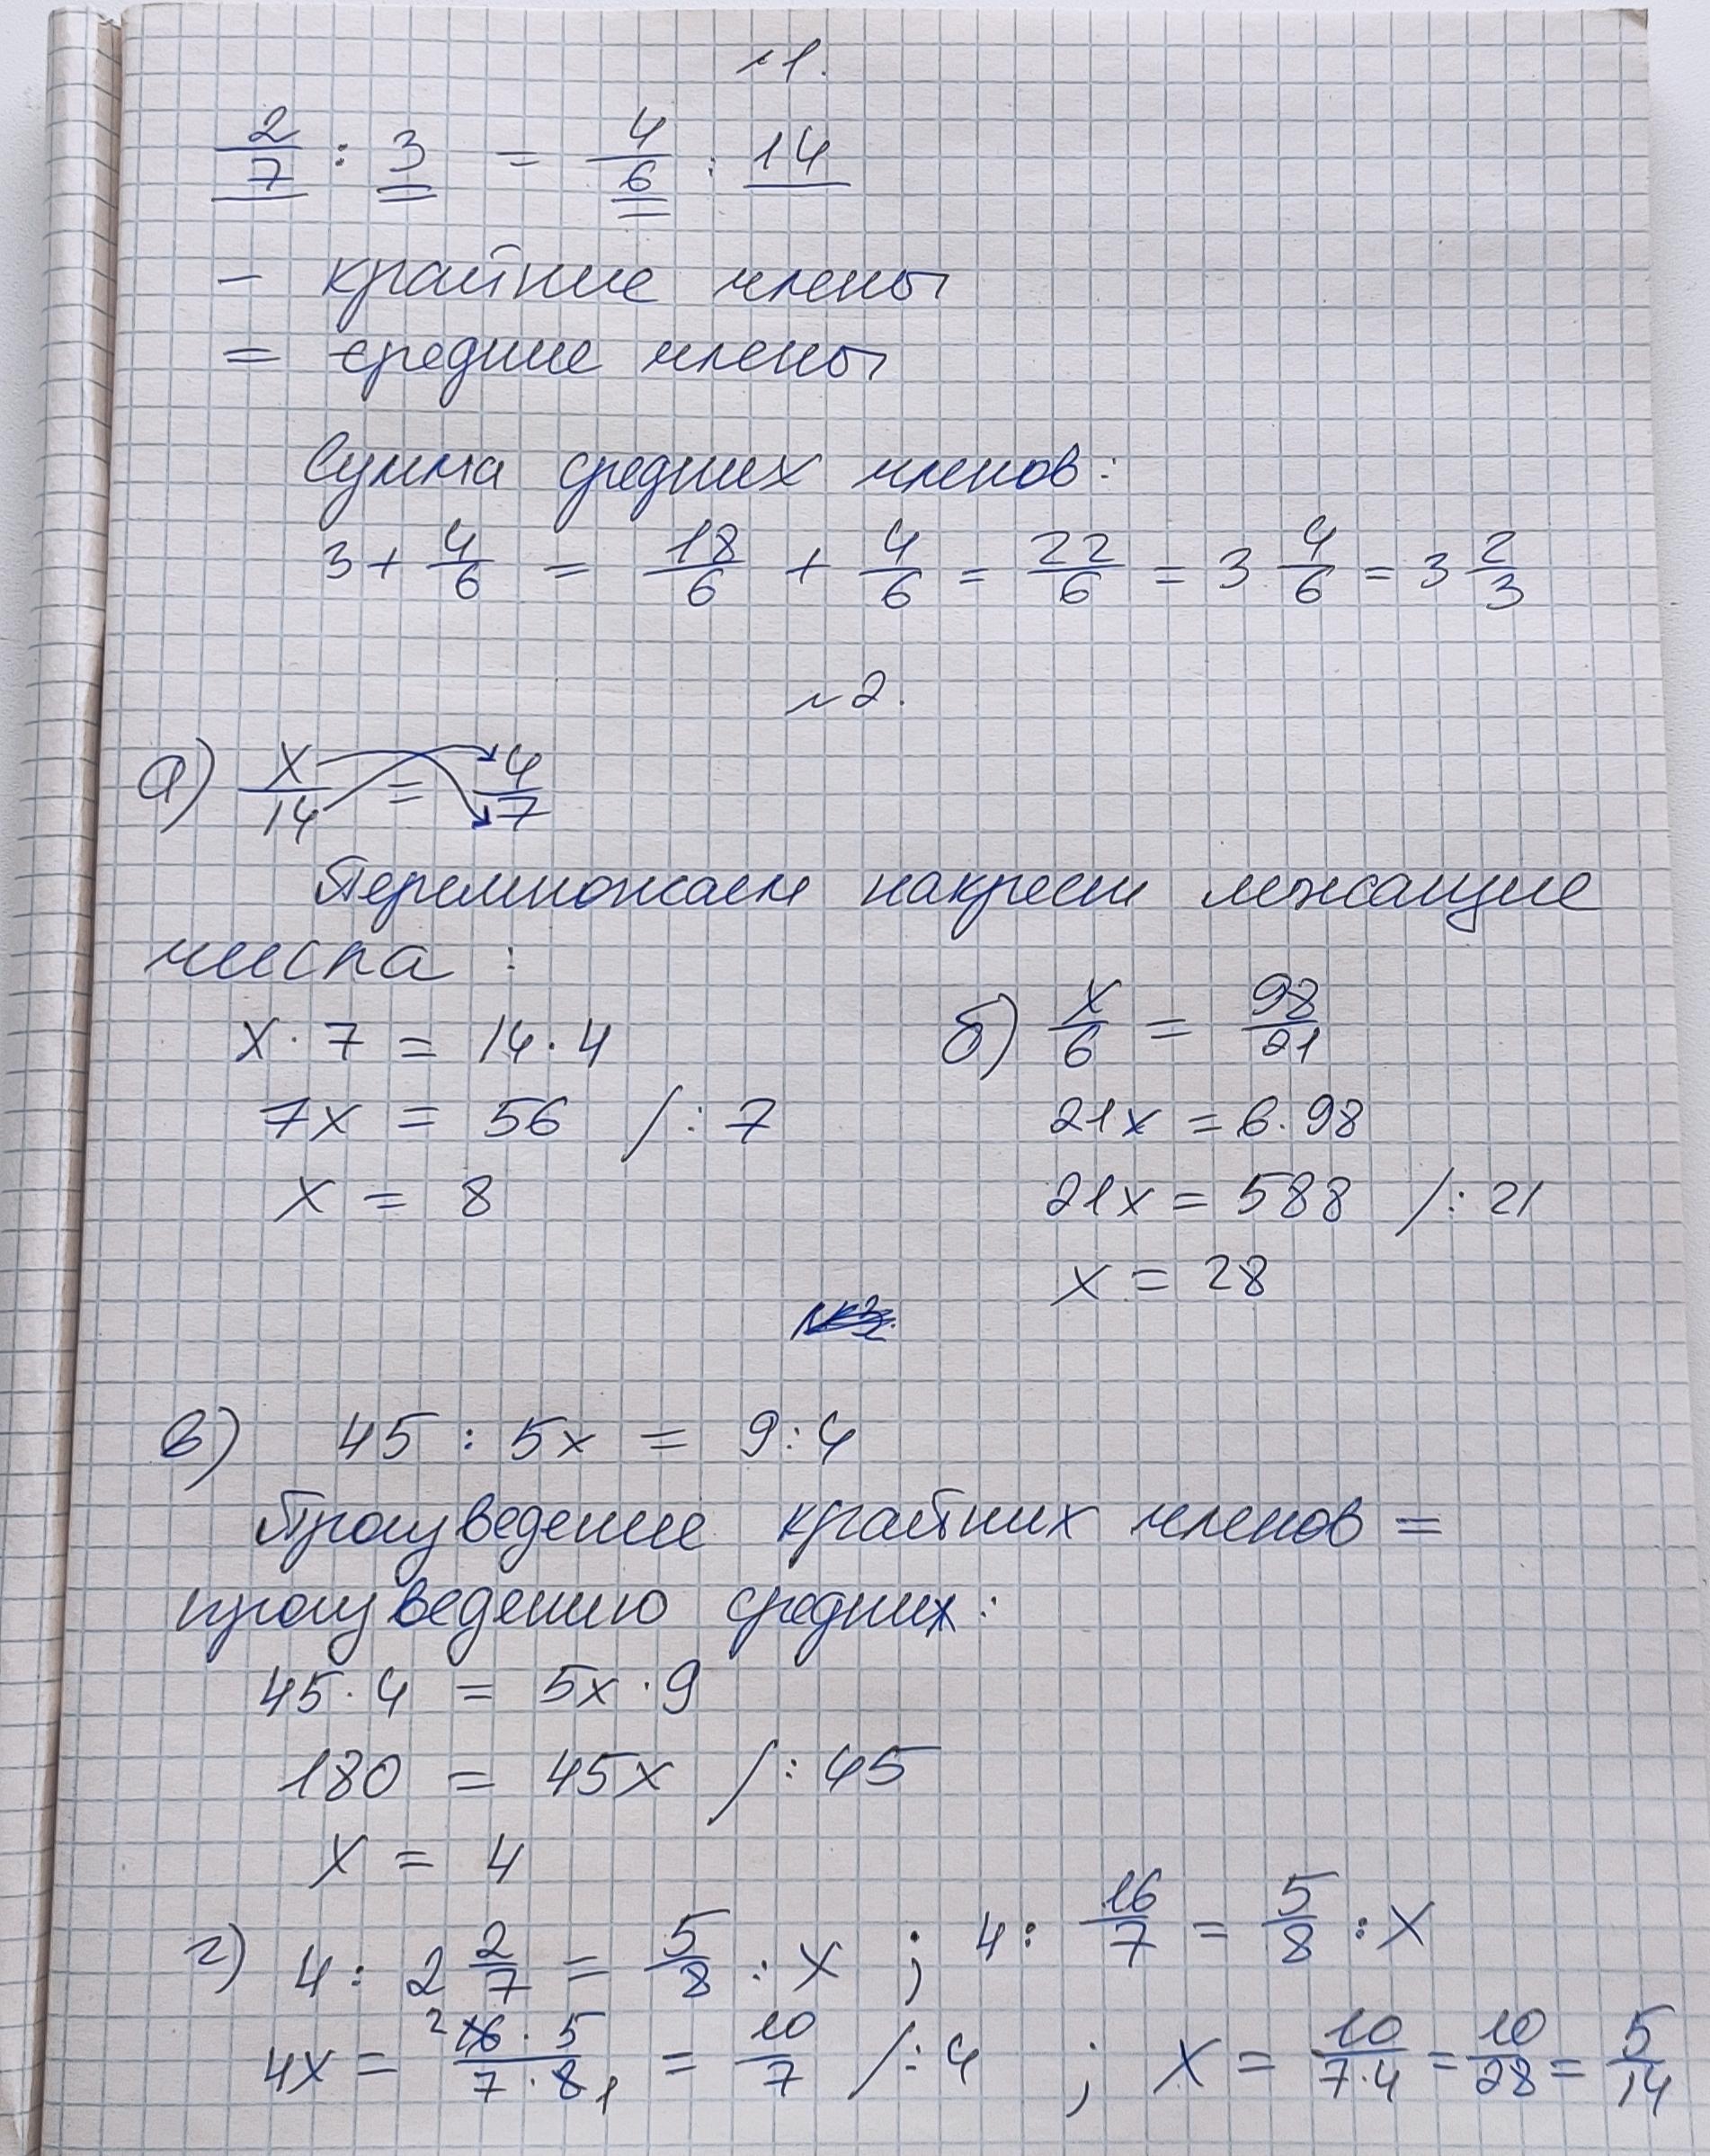 №1.
2/7 : 3 = 4/6 : 14
– крайние члены
= средние члены
Сумма средних членов:
3 + 4/6 = 18/6 + 4/6 = 22/6 = 3 4/6 = 3 2/3
№2.
а) x/14 = 4/7
Перемножаем накрест лежащие
числа :
x · 7 = 14 · 4
7x = 56 /: 7
x = 8
б) x/6 = 98/21
21x = 6 · 98
21x = 588 /: 21
x = 28
в) 45 : 5x = 9 : 4
Произведение крайних членов =
произведению средних:
45 · 4 = 5x · 9
180 = 45x /: 45
x = 4
г) 4 : 2 2/7 = 5/8 : x ; 4 : 16/7 = 5/8 : x
4x = 2 16 · 5 / 7 · 8 1 = 10/7 /: 4 ; x = 10/7·4 = 10/28 = 5/14